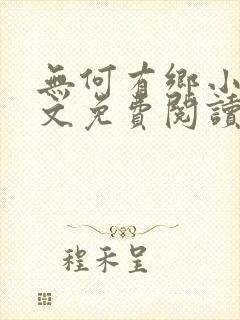 無何有鄉小
文免費閱讀
程禾呈